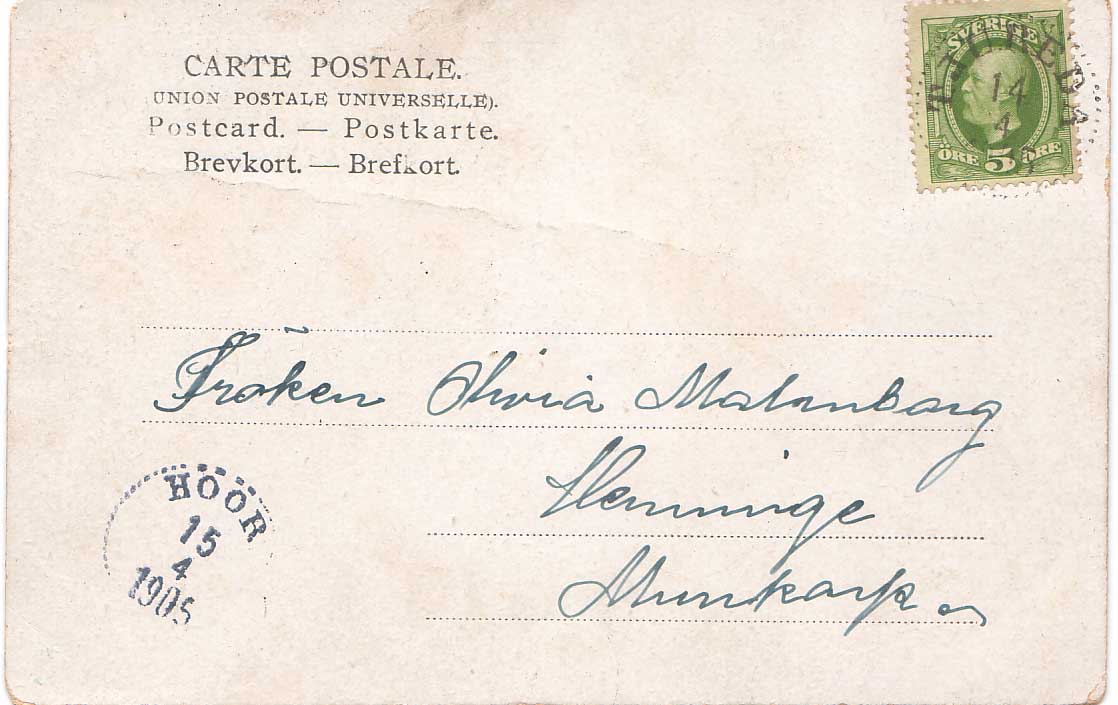 CARTE POSTALE.
UNION POSTALE UNIVERSELLE).
Postcard. — Postkarte.
Brevkort. — Brefkort.
SVERIGE
14
4
ÖRE 5 ÖRE
Fröken Malmborg
Henninge
Munkarp
HÖÖR
15
4
1905